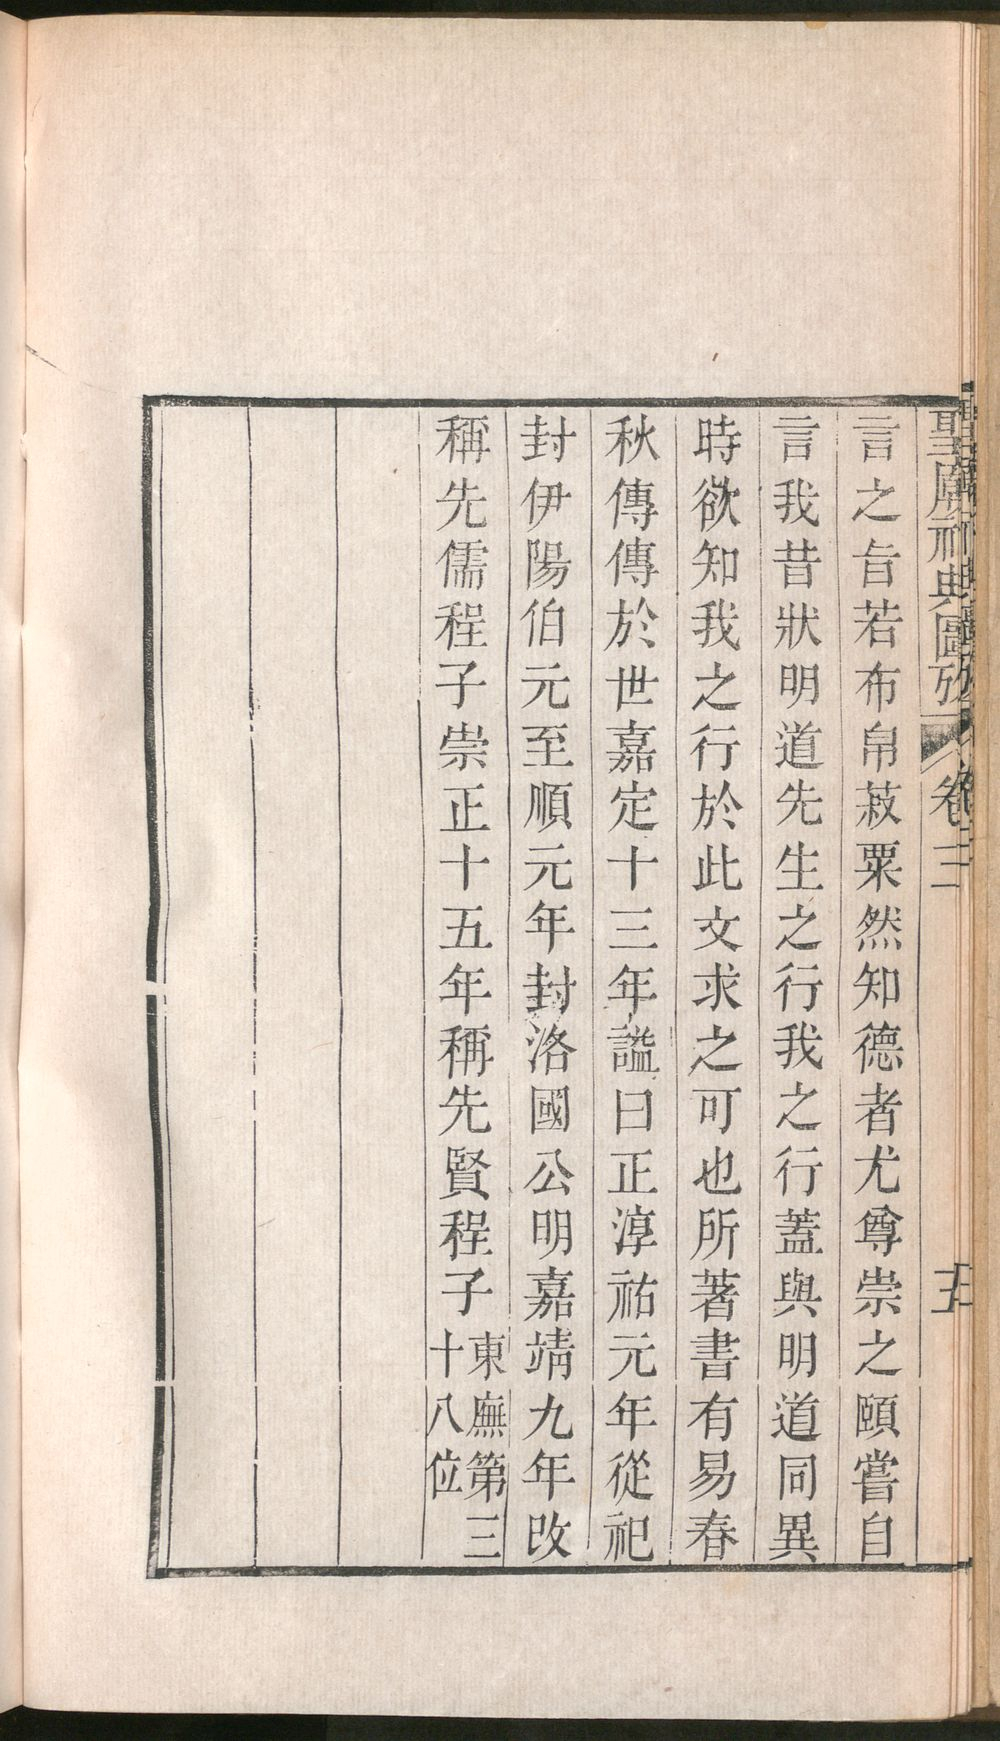 聖廟祀典圖攷 卷三 五
言之旨若布帛菽粟然知德者尤尊崇之頤嘗自
言我昔狀明道先生之行我之行蓋與明道同異
時欲知我之行於此文求之可也所著書有易春
秋傳傳於世嘉定十三年諡曰正淳祐元年從祀
封伊陽伯元至順元年封洛國公明嘉靖九年改
稱先儒程子崇正十五年稱先賢程子東廡第三
十八位